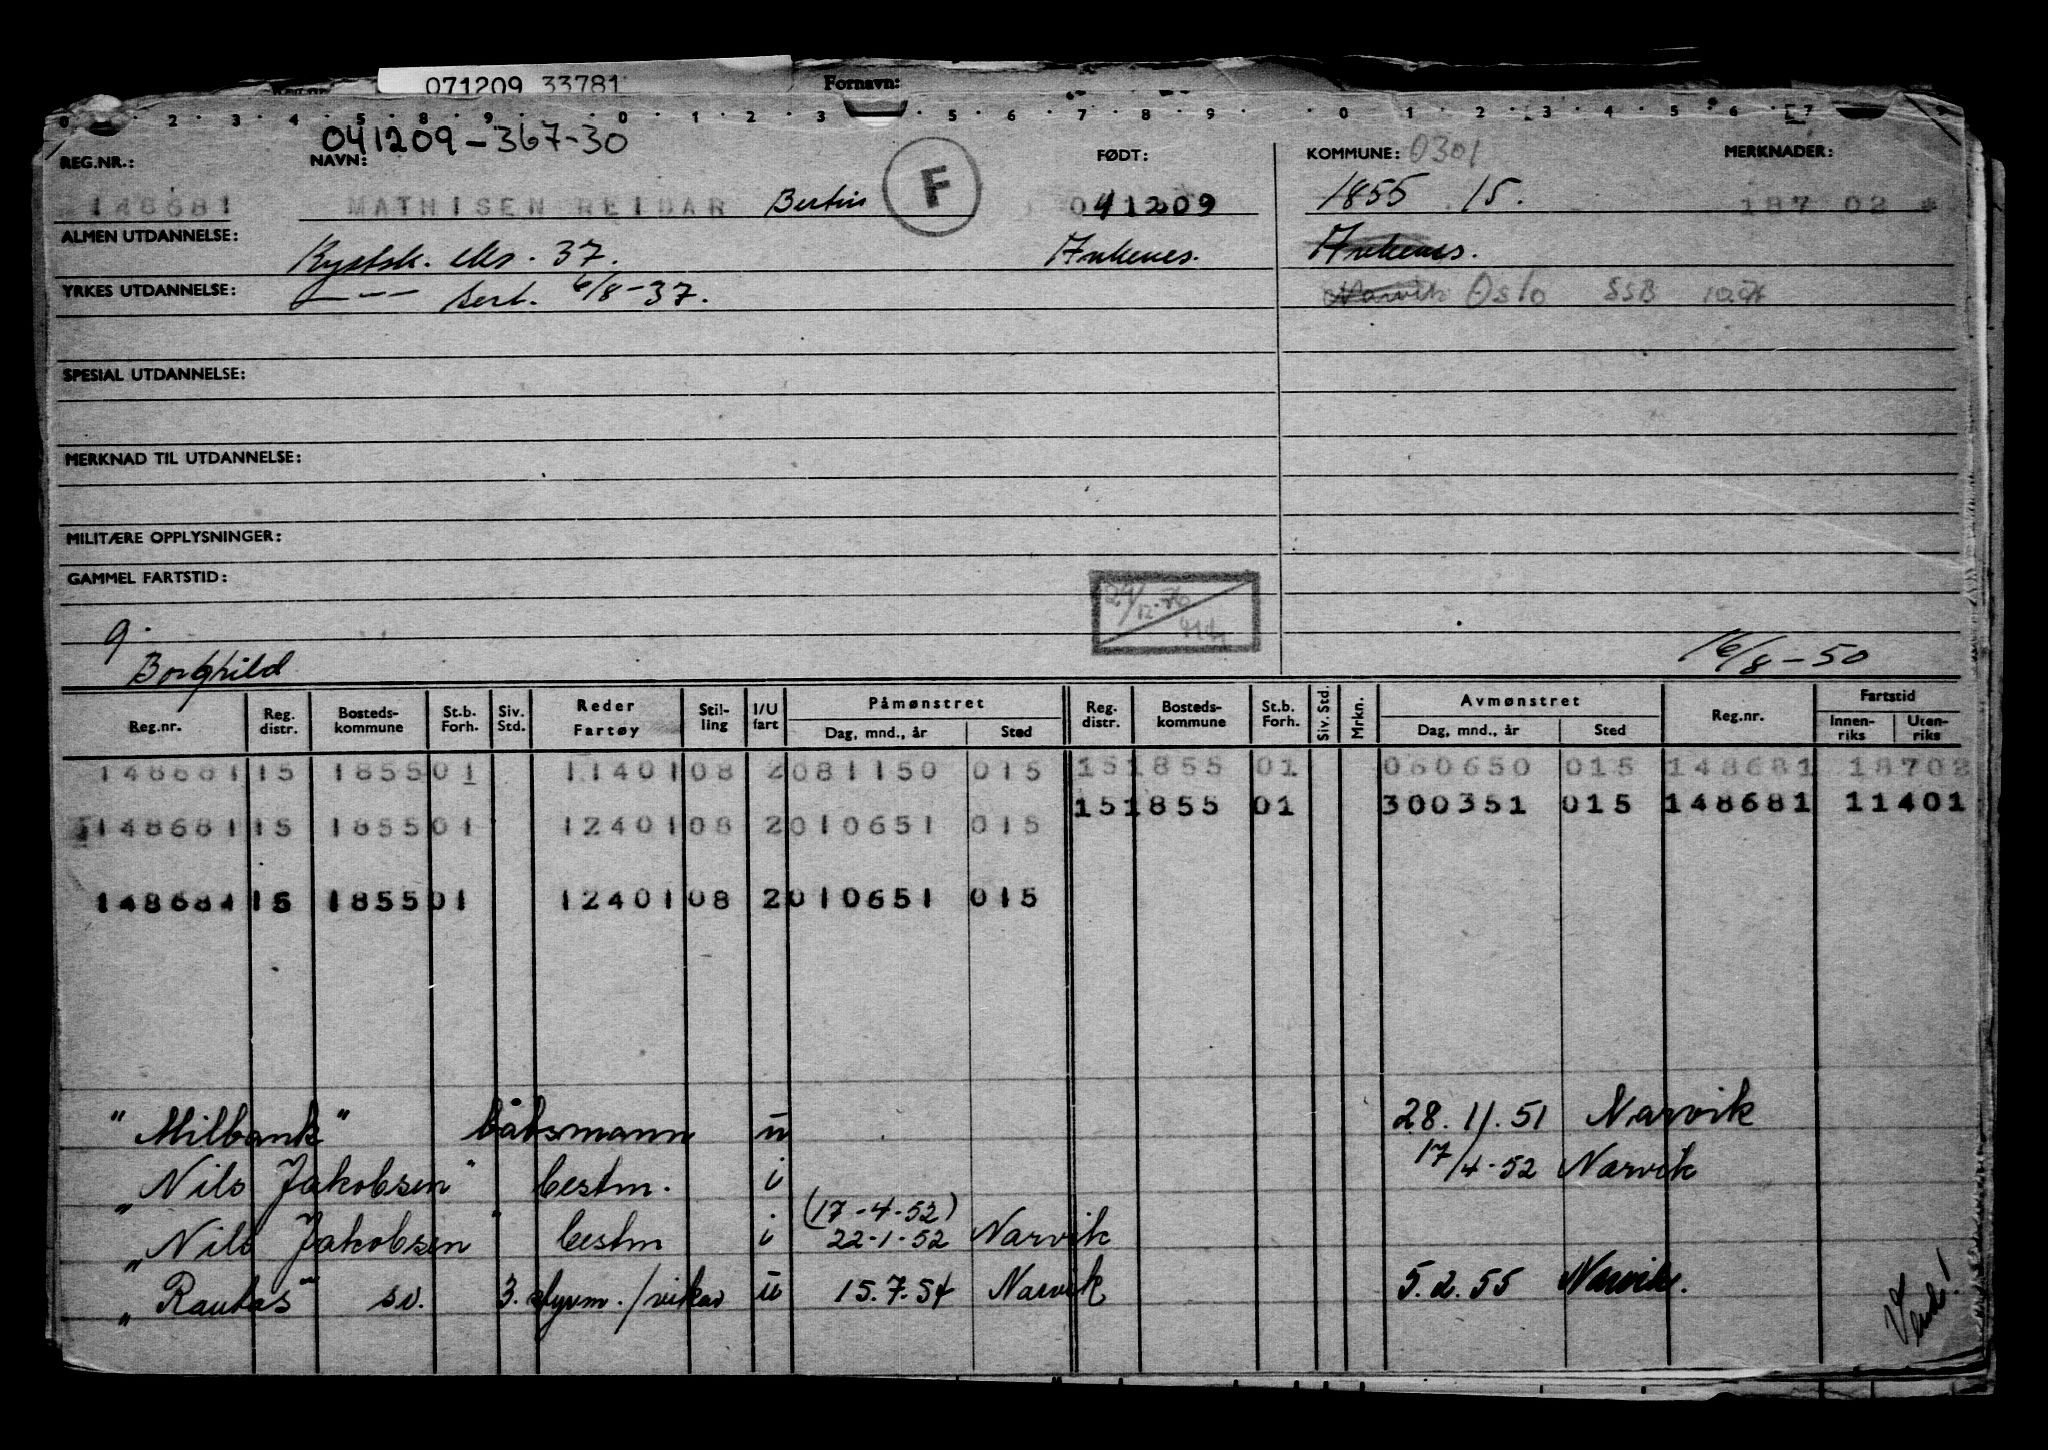 071209 33781 Fornavn:
041209-367-30
REG.NR.: NAVN: FØDT: KOMMUNE: 0301 MERKNADER:
148681 MATHISEN REIDAR Bertin F 041209 1855 15. 187 02
ALMEN UTDANNELSE: Kystsk. eks. 37. Ankenes. Ankenes.
YRKES UTDANNELSE: — — — sert. 6/8-37. Narvik Oslo SSB
SPESIAL UTDANNELSE:
MERKNAD TIL UTDANNELSE:
MILITÆRE OPPLYSNINGER:
GAMMEL FARTSTID:
g.
Borghild 16/8-50
Reg.nr. Reg. distr. Bosteds-kommune St.b. Forh. Siv. Std. Reder Fartøy Stil-ling I/U fart Påmønstret Dag, mnd., år Sted Reg. distr. Bosteds-kommune St.b. Forh. Siv. Std. Mrkn. Avmønstret Dag, mnd., år Sted Reg.nr. Fartstid Innen-riks Uten-riks
148681 15 1855 01 11401 08 2 081150 015 15 1855 01 060650 015 148681 18702
15 1855 01 300351 015 148681 11401
148681 15 1855 01 12401 08 2 010651 015
148681 15 1855 01 12401 08 2 010651 015
"Milbank" båtsmann u 28.11.51 Narvik
"Nils Jakobsen" bestm. i 17/4-52 Narvik
(17-4-52)
"Nils Jakobsen" bestm i 22-1-52 Narvik
"Rautas" sv. 3. styrm./vikar u 15.7.54 Narvik 5.2.55 Narvik.
Vend!